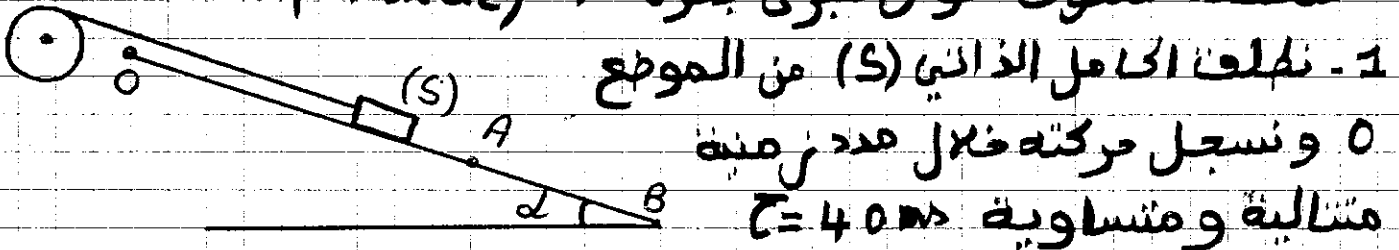 1- نطلق الحامل الذاتي (S) من الموضع
O و نسجل حركته خلال مدد زمنية
متتالية و متساوية τ=40ms
O
(S)
A
α
B